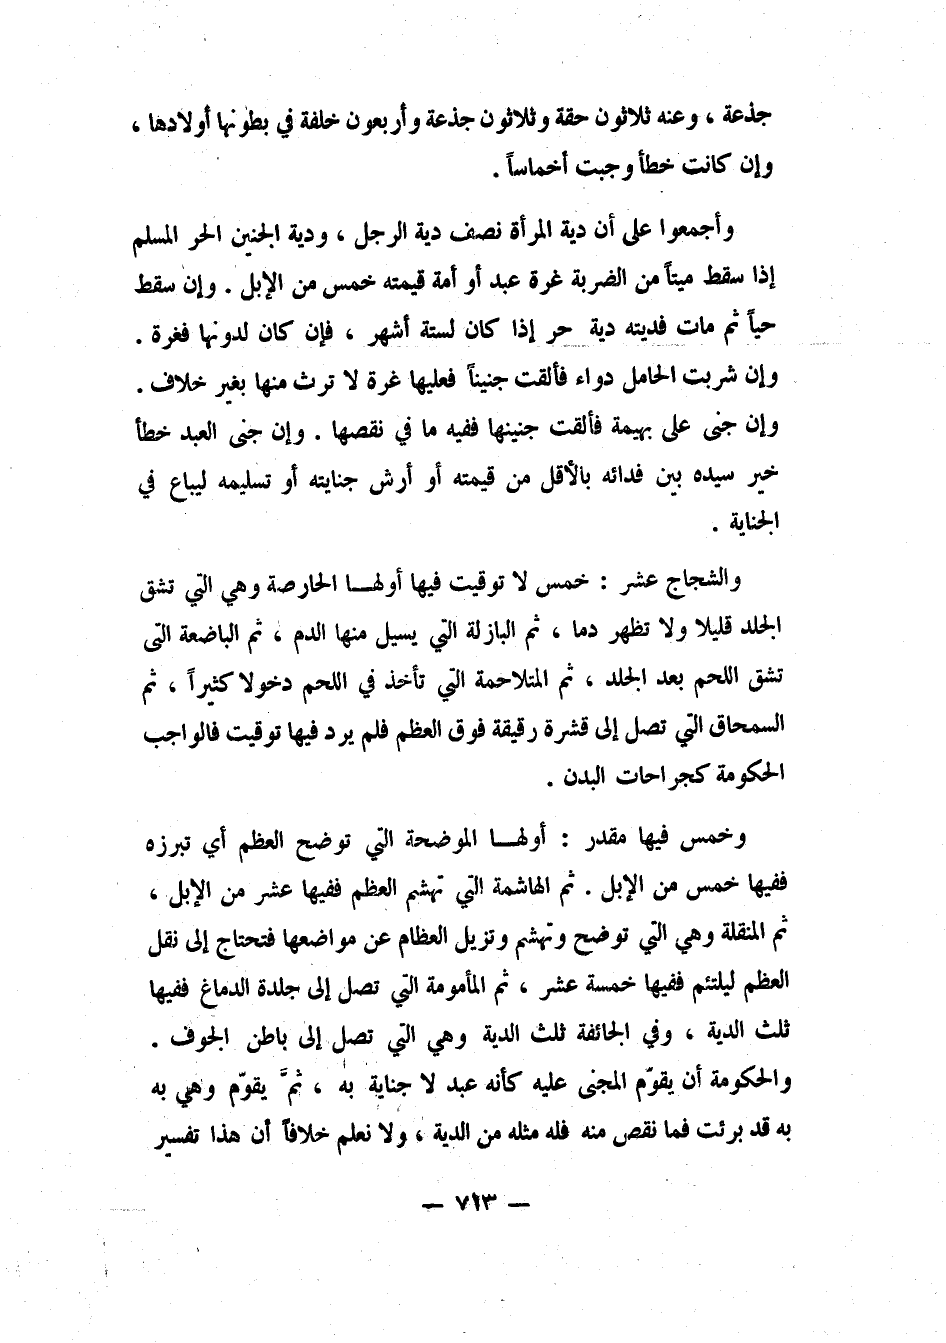 جذعة ، وعنه ثلاثون حقة وثلاثون جذعة وأربعون خلفة في بطونها أولادها ،
وإن كانت خطأ وجبت أخماساً .
وأجمعوا على أن دية المرأة نصف دية الرجل ، ودية الجنين الحر المسلم
إذا سقط ميتاً من الضربة غرة عبد أو أمة قيمته خمس من الإبل . وإن سقط
حياً ثم مات فديته دية حر إذا كان لستة أشهر ، فإن كان لدونها فغرة .
وإن شربت الحامل دواء فألقت جنيناً فعليها غرة لا ترث منها بغير خلاف .
وإن جنى على بهيمة فألقت جنينها ففيه ما في نقصها . وإن جنى العبد خطأ
خير سيده بين فدائه بالأقل من قيمته أو أرش جنايته أو تسليمه ليباع في
الجناية .
والشجاج عشر : خمس لا توقيت فيها أولهــا الحارصة وهي التي تشق
الجلد قليلا ولا تظهر دما ، ثم البازلة التي يسيل منها الدم ، ثم الباضعة التى
تشق اللحم بعد الجلد ، ثم المتلاحمة التي تأخذ في اللحم دخولا كثيراً ، ثم
السمحاق التي تصل إلى قشرة رقيقة فوق العظم فلم يرد فيها توقيت فالواجب
الحكومة كجراحات البدن .
وخمس فيها مقدر : أولهــا الموضحة التي توضح العظم أي تبرزه
ففيها خمس من الإبل . ثم الهاشمة التي تهشم العظم ففيها عشر من الإبل ،
ثم المنقلة وهي التي توضح وتهشم وتزيل العظام عن مواضعها فتحتاج إلى نقل
العظم ليلتئم ففيها خمسة عشر ، ثم المأمومة التي تصل إلى جلدة الدماغ ففيها
ثلث الدية ، وفي الجائفة ثلث الدية وهي التي تصل إلى باطن الجوف .
والحكومة أن يقوّم المجنى عليه كأنه عبد لا جناية به ، ثمَّ يقوّم وهي به
به قد برئت فما نقص منه فله مثله من الدية ، ولا نعلم خلافاً أن هذا تفسير
— ٧١٣ —